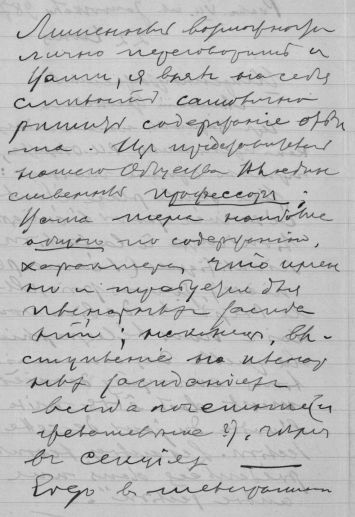 Лишенный возможности
лично переговорить с
Вами, я взял на себя
смелость самовольно
решить содержание отве
та. Из представителей
нашего Общества Вы един
ственный профессор;
Ваша тема наиболее
общего по содержанию,
характера, что имен
но и требуется для
пленарных заседа
ний; наконец, вы-
ступление на пленар
ных заседаниях
всегда почетнее (и
), чем
в секциях
Если в